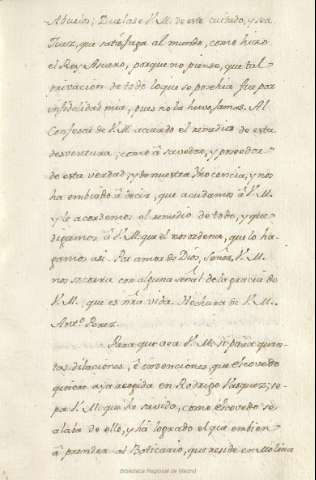 Abuelos; Duelase V. M. de este cuidado, y sea
Juez, que satisfaga al mundo, como hizo
el Rey Asuero, porque no piense, que tal
privacion de todo lo que se posehia fue por
infidelidad mia, pues no la huvo jamas. Al
Confesor de V. M. acuerdo el remedio de esta
desventura; como á savedor, y proveedor
de esta verdad, y de nuestra Ynocencia, y nos
ha embiado á decir, que acudamos á V. M.
y le acordemos el remedio de todo, y que
digamos á V. M. que él nos ordena, que lo ha-
gamos asi. Por amor de Dios, Señor, V. M.
nos socorra con alguna señal de la gracia de
V. M. que es nra vida. Hechura de V. M.
Antº. Perez.
Para que vea V. M. si pasa quan-
tas dilaciones, é invenciones, que Escovedo
quiere aya acogida en Rodrigo Vazquez; se-
pa V. M. que he savido, como Escovedo se
alaba de ello, y ha logrado el que embien
á prender al Boticario, que reside en Molina
Biblioteca Regional de Madrid